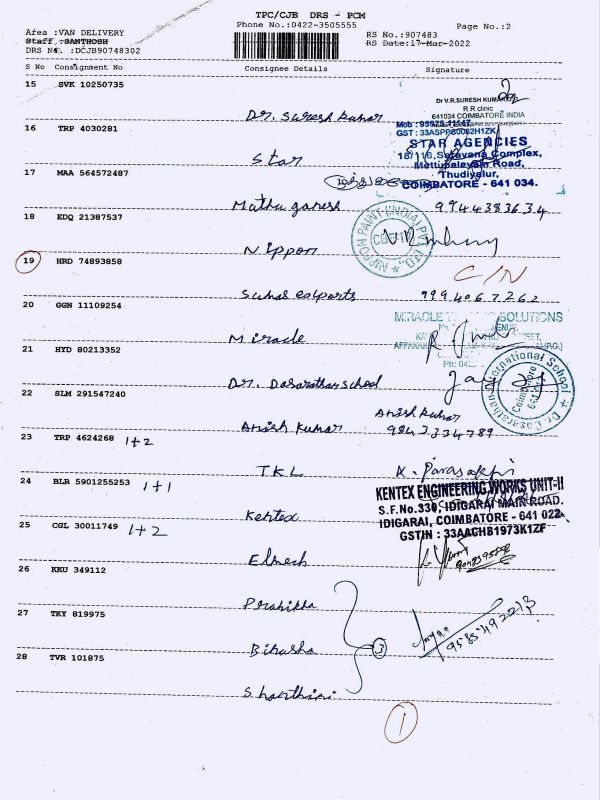 TPC/CJB DRS - PCM
Phone No.:0422-3505555
Page No.:2
Area :VAN DELIVERY
Staff :SANTHOSH
DRS No. :DCJB90748302
RS No.:907483
RS Date:17-Mar-2022
S No Consignment No Consignee Details Signature
15 EVK 10250735
Dr. Suresh kumar
Dr V.R.SURESH KUMAR
R.R.clinic
641034 COIMBATORE INDIA
16 TRP 4030281
Star
Mob : 95975 11147
GST : 33ASPPS0082H1ZK
STAR AGENCIES
18/116, Saravana Complex,
Mettupalayam Road,
Thudiyalur,
COIMBATORE - 641 034.
17 MAA 564572487
Mathu ganesh 9944383634
18 EDQ 21387537
Nippon
NIPPON PAINT (INDIA) PVT. LTD.
19 HRD 74893858
C/N
Suhas exports 9994067262
20 GGN 11109254
Miracle
MIRACLE SOLUTIONS
21 HYD 80213352
Dr. Dasarathan school
Dr. Dasarathan International School
Coimbatore
22 SLM 291547240
Anish kumar
Anish Kumar
9843334789
23 TRP 4624268 1+2
T.K.L
24 BLR 5901255253 1+1
Kentex
KENTEX ENGINEERING WORKS UNIT-II
S.F.No.330, IDIGARAI MAIN ROAD.
IDIGARAI, COIMBATORE - 641 022.
GSTIN : 33AACHB1973K1ZF
25 CGL 30011749 1+2
26 KKU 349112
27 TKY 819975
3
9585492213
28 TVR 101875
1